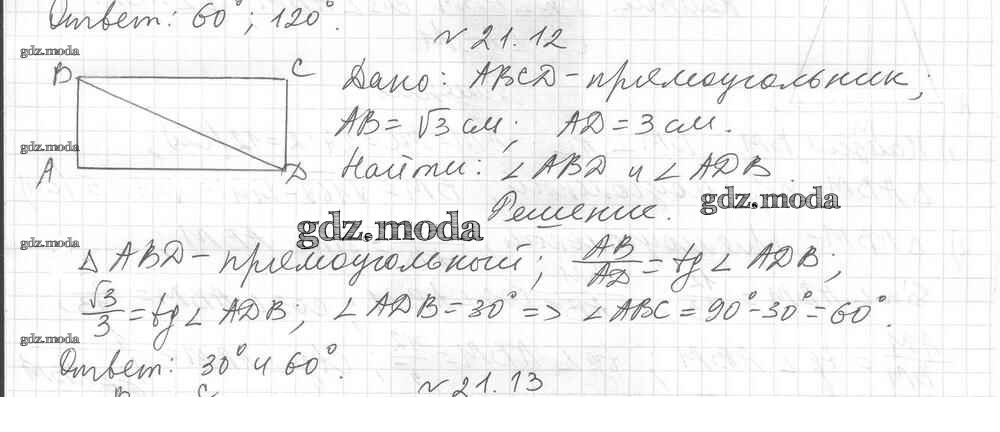 Ответ: 60°; 120°.
№ 21.12
gdz.moda
B
C
Дано: ABCD - прямоугольник;
AB = √3 см; AD = 3 см.
gdz.moda
A
D
Найти: ∠ABD и ∠ADB.
gdz.moda
Решение.
gdz.moda
gdz.moda
△ABD - прямоугольный; AB/AD = tg∠ADB;
√3/3 = tg∠ADB; ∠ADB = 30° => ∠ABC = 90° - 30° = 60°.
gdz.moda
Ответ: 30° и 60°.
№ 21.13
B C